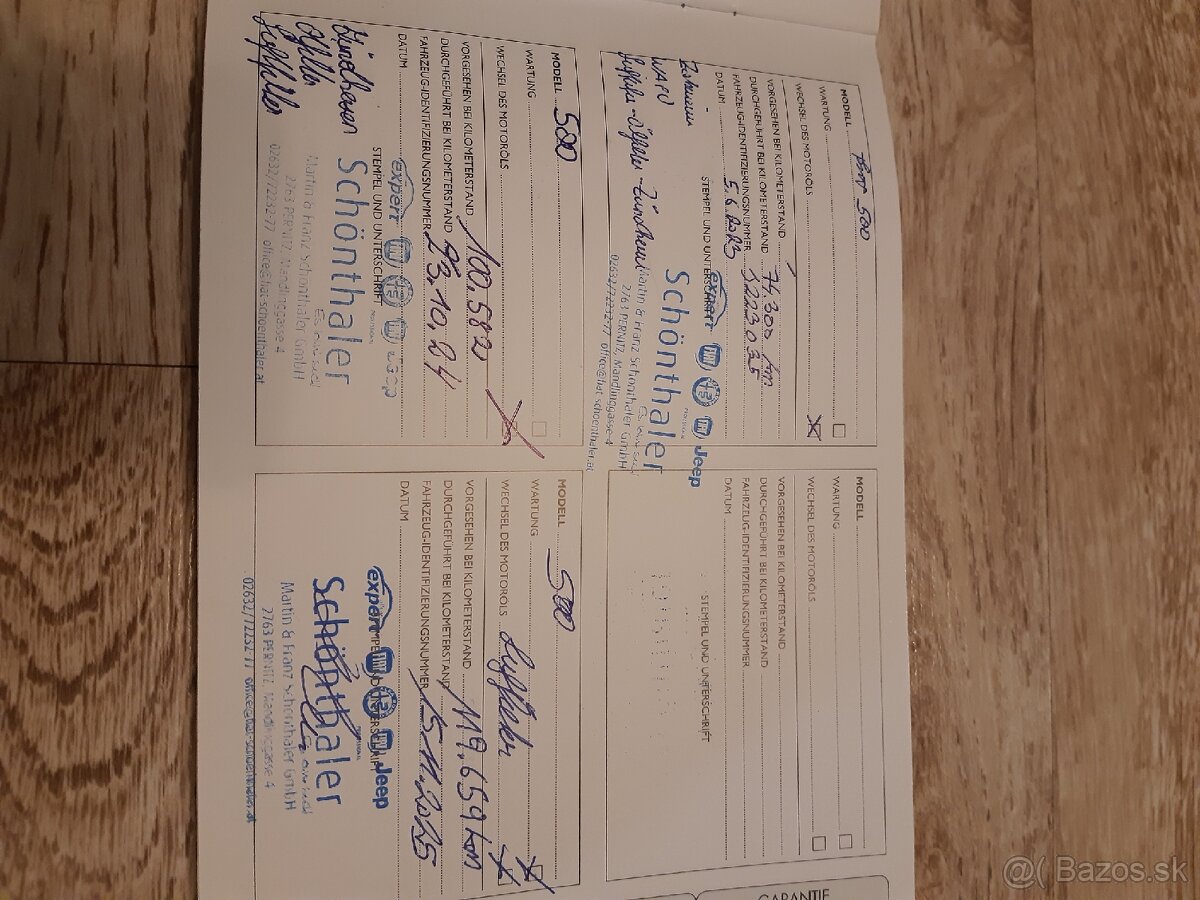 MODELL Fiat 500
WARTUNG
WECHSEL DES MOTORÖLS
VORGESEHEN BEI KILOMETERSTAND
DURCHGEFÜHRT BEI KILOMETERSTAND 74.300 km
FAHRZEUG-IDENTIFIZIERUNGSNUMMER
DATUM 5.6.2023
STEMPEL UND UNTERSCHRIFT
expert Jeep
Schönthaler
Martin & Franz Schönthaler GmbH
2763 PERNITZ, Mandlinggasse 4
02632/72232-77 office@fiat-schoenthaler.at
MODELL
WARTUNG
WECHSEL DES MOTORÖLS
VORGESEHEN BEI KILOMETERSTAND
DURCHGEFÜHRT BEI KILOMETERSTAND
FAHRZEUG-IDENTIFIZIERUNGSNUMMER
DATUM
STEMPEL UND UNTERSCHRIFT
MODELL 500
WARTUNG
WECHSEL DES MOTORÖLS
VORGESEHEN BEI KILOMETERSTAND
DURCHGEFÜHRT BEI KILOMETERSTAND 100.582
FAHRZEUG-IDENTIFIZIERUNGSNUMMER 23.10.24
DATUM
STEMPEL UND UNTERSCHRIFT
expert Jeep
Schönthaler
Martin & Franz Schönthaler GmbH
2763 PERNITZ, Mandlinggasse 4
02632/72232-77 office@fiat-schoenthaler.at
MODELL 500
WARTUNG
WECHSEL DES MOTORÖLS
VORGESEHEN BEI KILOMETERSTAND
DURCHGEFÜHRT BEI KILOMETERSTAND 119.659 km
FAHRZEUG-IDENTIFIZIERUNGSNUMMER 15.11.2025
DATUM
expert Jeep
Schönthaler
Martin & Franz Schönthaler GmbH
2763 PERNITZ, Mandlinggasse 4
02632/72232-77 office@fiat-schoenthaler.at
GARANTIE
Bazos.sk